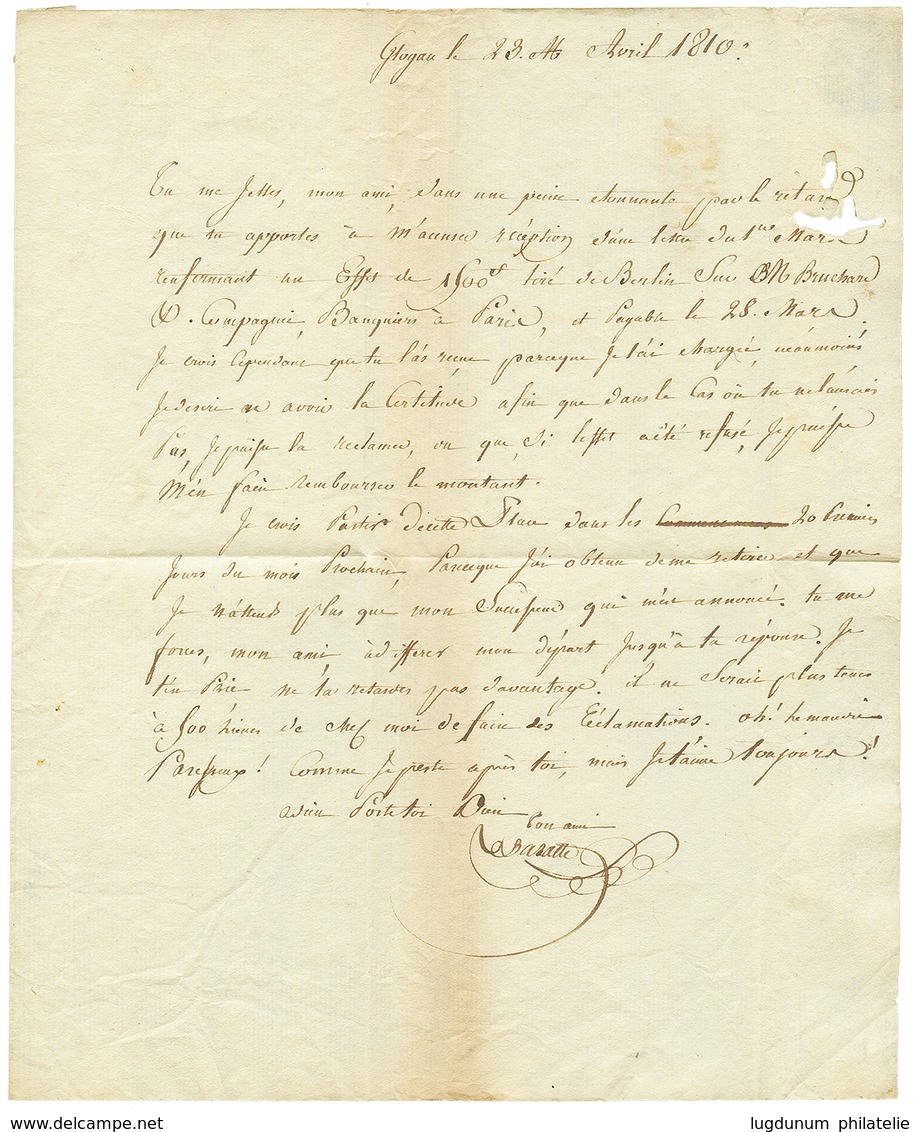 Glogau le 23. Avril 1810.
Tu me jettes, mon ami, dans une peine etonnante par le retard
que tu apportes à m'accuser réception d'une lettre du 1er Mars
renfermant un Effet de 1500# tiré de Berlin Sur MM Bruchard
& Compagnie, Banquiers à Paris, et Payable le 28. Mars.
Je crois Cependant que tu l'as recue, parceque Je l'ai chargée, néanmoins
Je desire en avoir la Certitude afin que dans le Cas où tu ne l'aurais
Pas, Je puisse la réclamer, ou que, Si l'effet a été refusé, Je puisse
M'en faire rembourser le montant.
Je crois Partir de cette Place dans les 20 Premiers
Jours du mois Prochain, Parceque J'ai obtenu de me retirer et que
Je n'attends plus que mon Successeur qui m'est annoncé. tu me
forces, mon ami, à differer mon départ Jusqu'à ta réponse. Je
t'en Prie ne la retardes pas davantage. il ne Serait plus tems
à 500 lieues de chez moi de faire des Réclamations. oh! le maudit
Paresseux! Comme Je peste après toi, mais Je t'aime toujours!
adieu Porte toi Bien
ton ami
lugdunum philatelie www.delcampe.net